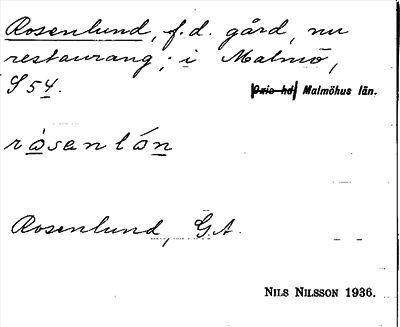 Rosenlund, f.d. gård, nu
restaurang; i Malmö,
S 54.
Oxie hd Malmöhus län.
ròsenlón
Rosenlund, G.A.
Nils Nilsson 1936.